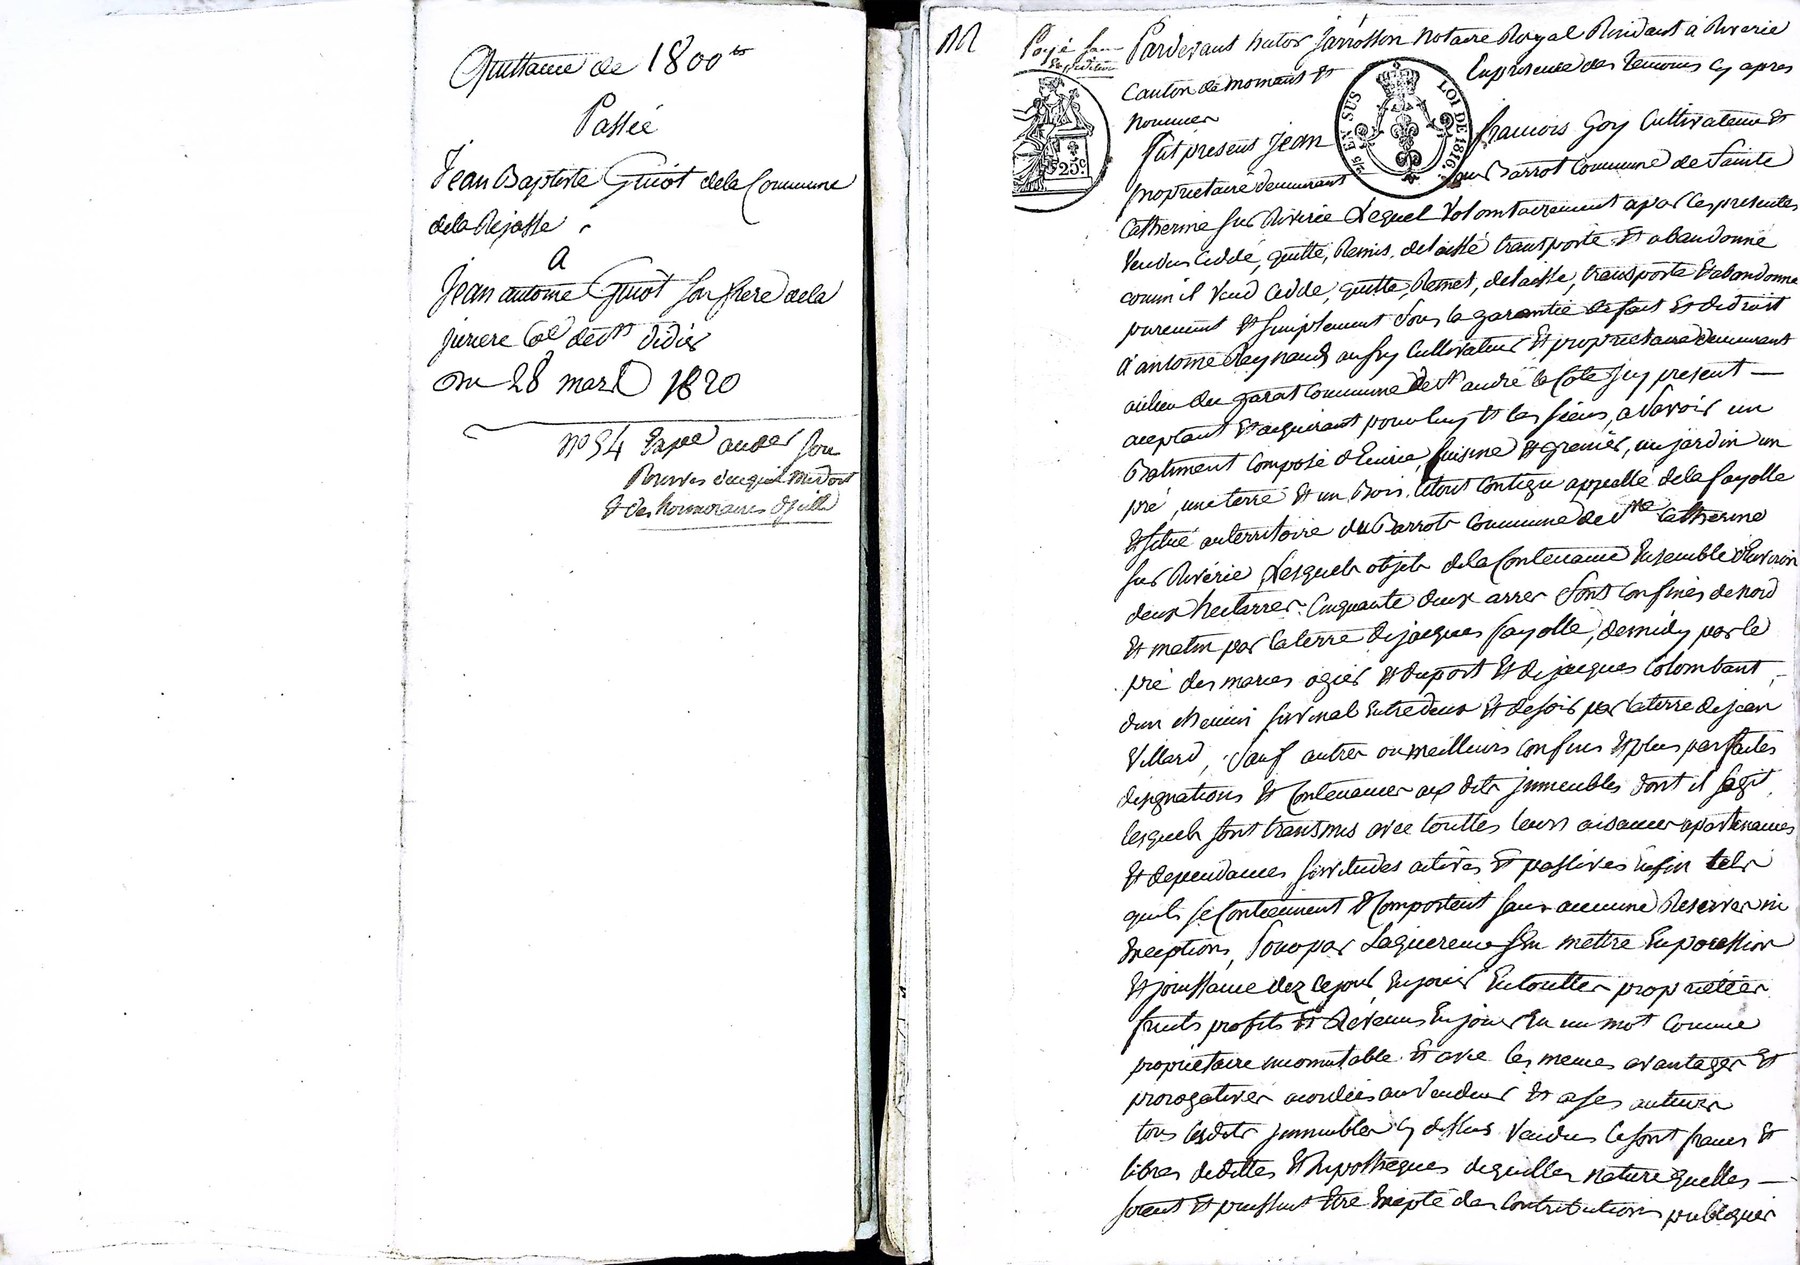 Quittance de 1800 ₶
Passée
Jean Baptiste Guiot dela Commune
dela Rejasse
A
Jean antoine Guiot son frere dela
jurere Cne de St didier
Du 28 mars 1820
no 54
& des honoraires
Payé sans
Expedition
Pardevant notor jarrosson Notaire Royal Residant à Riverie
Canton de mornant & En presence des Temoins cy apres
nommes
EN SUS
LOI DE 1816.
25c.
fut present jean francois Goy Cultivateur &
proprietaire demeurant au Barrot Commune de Sainte
Catherine sur Riverie Lequel Volontairement a par les presentes
Vendu Ceddé, quitté, Remis, delaissé transporté & abandonné
comm il Vend Cedde, quitte, Remet, delaisse, transporte & abandonne
purement & simplement sous la garantie de fait & de droit
A antoine Raynaud Cultivateur & proprietaire demeurant
au lieu du garat Commune de St andré la Cote jcy present —
aceptant & aquerant pour luy & les siens, a Savoir un
Batiment Composé d'Ecurie, Cuisine & grenier, un jardin un
pré, une terre & un Bois, letout Contigu appellé dela fayolle
& situé au territoire du Barrot Commune de Ste Catherine
sur Riverie Lesquels objets dela Contenance Ensemble d'Environ
deux hectarres Cinquante deux arres Sont Confinés de nord
& matin par la terre de jacques fayolle, de midy par le
pré des maries ogier & duport & de jacques Colombant,
dun Chemin Entredeux & de soir par la terre de jean
Villard, Sauf autres ou meilleurs Confins & plus parfaites
designations & Contenances aux dits jmmeubles dont il sagit,
lesquels sont transmis avec touttes leurs aisances apartenances
& dependances, servitudes actives & passives enfin tels
quils se Contiennent & Comportent sans aucune Reserve ni
Exceptions, pour par Laquereur s'en mettre En possession
& jouissance dez ce jour, En jouir En touttes proprietées
fruits profits & Revenus En jouir En un mot Comme
proprietaire incommutable & avec les memes avantages &
prerogatives acordées au Vendeur & a ses auteurs
tous lesdits jmmeubles cy dessus Vendus le sont francs &
libres de dettes & hypotheques de quelles nature quelles —
soient & puissent Etre Excepté des Contributions publiques